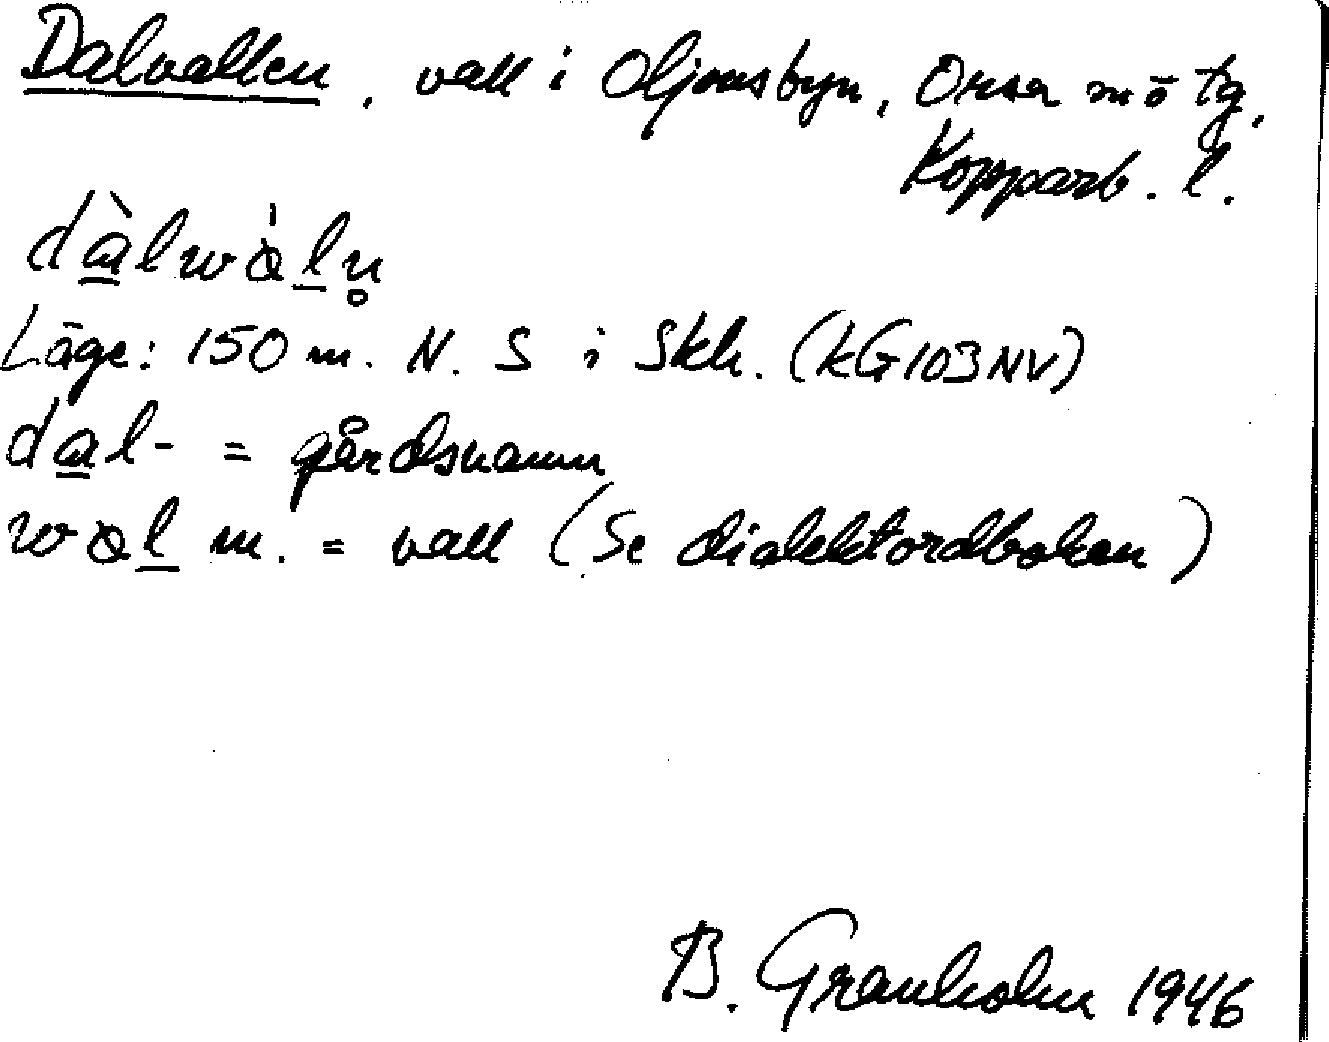 Dalvallen, vall i Oljonsbyn, Orsa sn ö tg,
Kopparb. l.
dàlwàln̥
Läge: 150 m. N. S i Skh. (kG103NV)
dal- = gårdsnamn
wal m. = vall (Se dialektordboken)
B. Granholm 1946